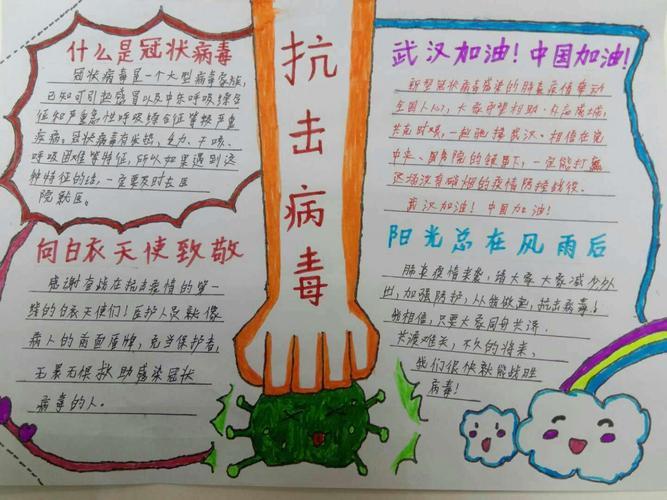 什么是冠状病毒
冠状病毒是一个大型病毒家族,
已知可引起感冒以及中东呼吸综合
征和严重急性呼吸综合征等较严重
疾病。冠状病毒有发热、乏力、干咳、
呼吸困难等特征,所以如果遇到这
种特征的话,一定要及时去医
院就医。
向白衣天使致敬
感谢奋战在抗击疫情的第一
线的白衣天使们!医护人员就像
病人的前面盾牌,充当保护者,
无畏无惧救助感染冠状
病毒的人。
抗击病毒
武汉加油!中国加油!
新型冠状病毒感染的肺炎疫情牵动
全国人心,大家守望相助、众志成城,
共克时艰,一起驰援武汉。相信在党
中央、国务院的领导下,一定能打赢
这场没有硝烟的疫情防控战役。
武汉加油!中国加油!
阳光总在风雨后
肺炎疫情来袭,请大家大家减少外
出,加强防护,从我做起,抗击病毒!
我相信,只要大家同舟共济、
共渡难关,不久的将来,
我们很快就能战胜
病毒!